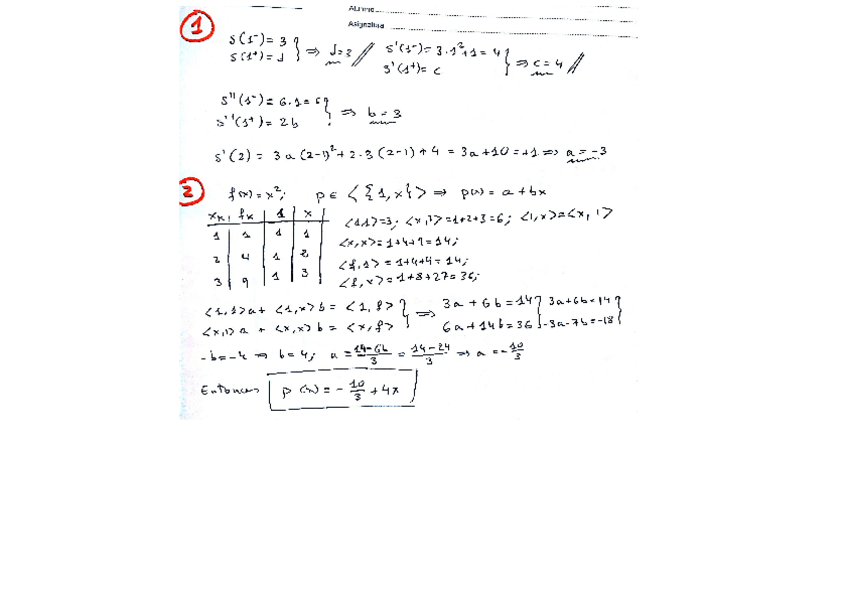 Alumno
Asignatura
1
s(1⁻) = 3
s(1⁺) = d } ⇒ d = 3 // s'(1⁻) = 3·1²+1 = 4
s'(1⁺) = c } ⇒ c = 4 //
s''(1⁻) = 6·1 = 6
s''(1⁺) = 2b } ⇒ b = 3
s'(2) = 3a(2-1)²+2·3(2-1)+4 = 3a+10 = +1 ⇒ a = -3
2
f(x) = x²; p ∈ <{1,x}> ⇒ p(x) = a+bx
xₖ | fₖ | 1 | x
1 | 1 | 1 | 1
2 | 4 | 1 | 2
3 | 9 | 1 | 3
<1,1>=3; <x,1>=1+2+3=6; <1,x>=<x,1>
<x,x>=1+4+9=14;
<f,1>=1+4+9=14;
<f,x>=1+8+27=36;
<1,1>a + <1,x>b = <1,f>
<x,1>a + <x,x>b = <x,f> } ⇒ 3a+6b=14 } 3a+6b=14
6a+14b=36 } -3a-7b=-18 }
-b=-4 ⇒ b=4; a = (14-6b)/3 = (14-24)/3 ⇒ a = -10/3
Entonces p(x) = -10/3 + 4x